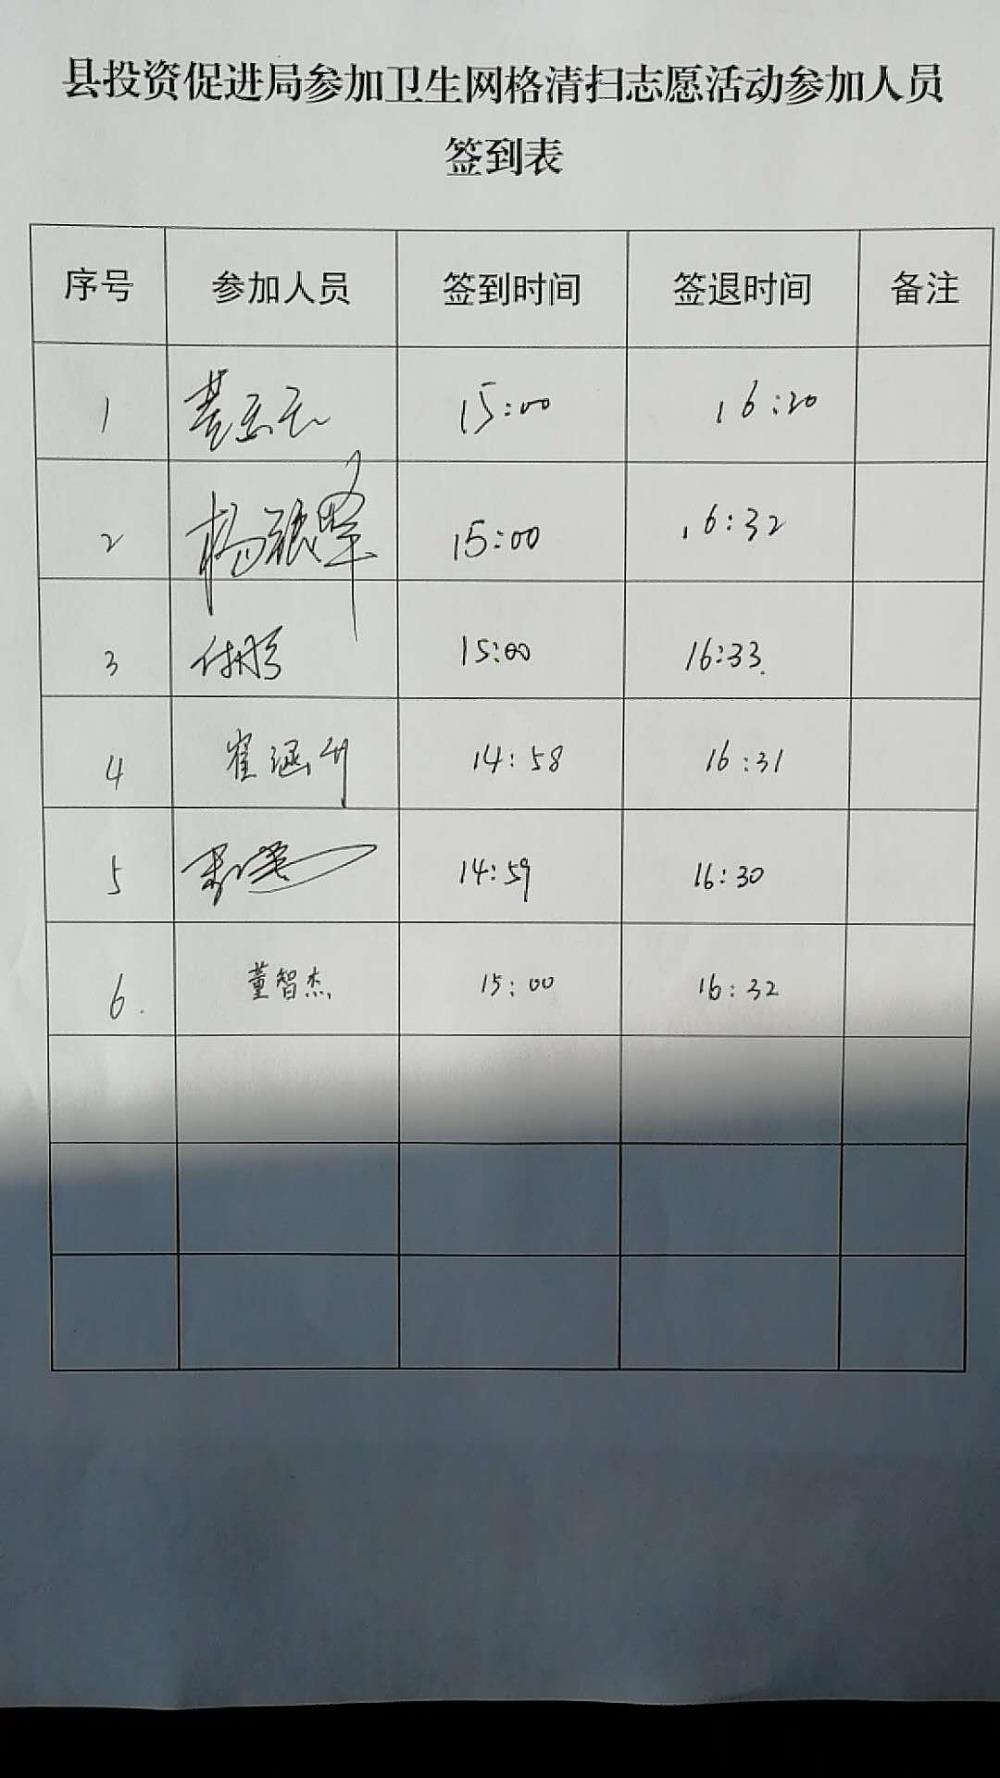 县投资促进局参加卫生网格清扫志愿活动参加人员
签到表
序号 参加人员 签到时间 签退时间 备注
1 15:00 16:20
2 杨 15:00 16:32
3 付彤 15:00 16:33.
4 崔涵 14:58 16:31
5 14:59 16:30
6. 董智杰 15:00 16:32